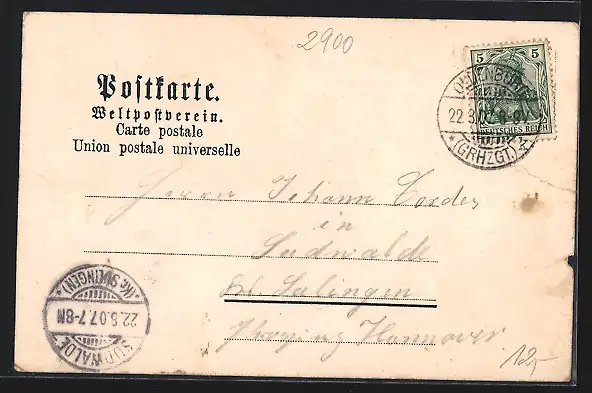 2900
Postkarte.
Weltpostverein.
Carte postale
Union postale universelle
5 5
DEUTSCHES REICH
OLDENBURG
22.3.07.
*(GRHZGT.)
Herrn Johann Cordes
in
Sudwalde
Kr. Sulingen
Provinz Hannover
SUDWALDE
22.5.07.7-8N
*(Kr. SULINGEN)*
12,-